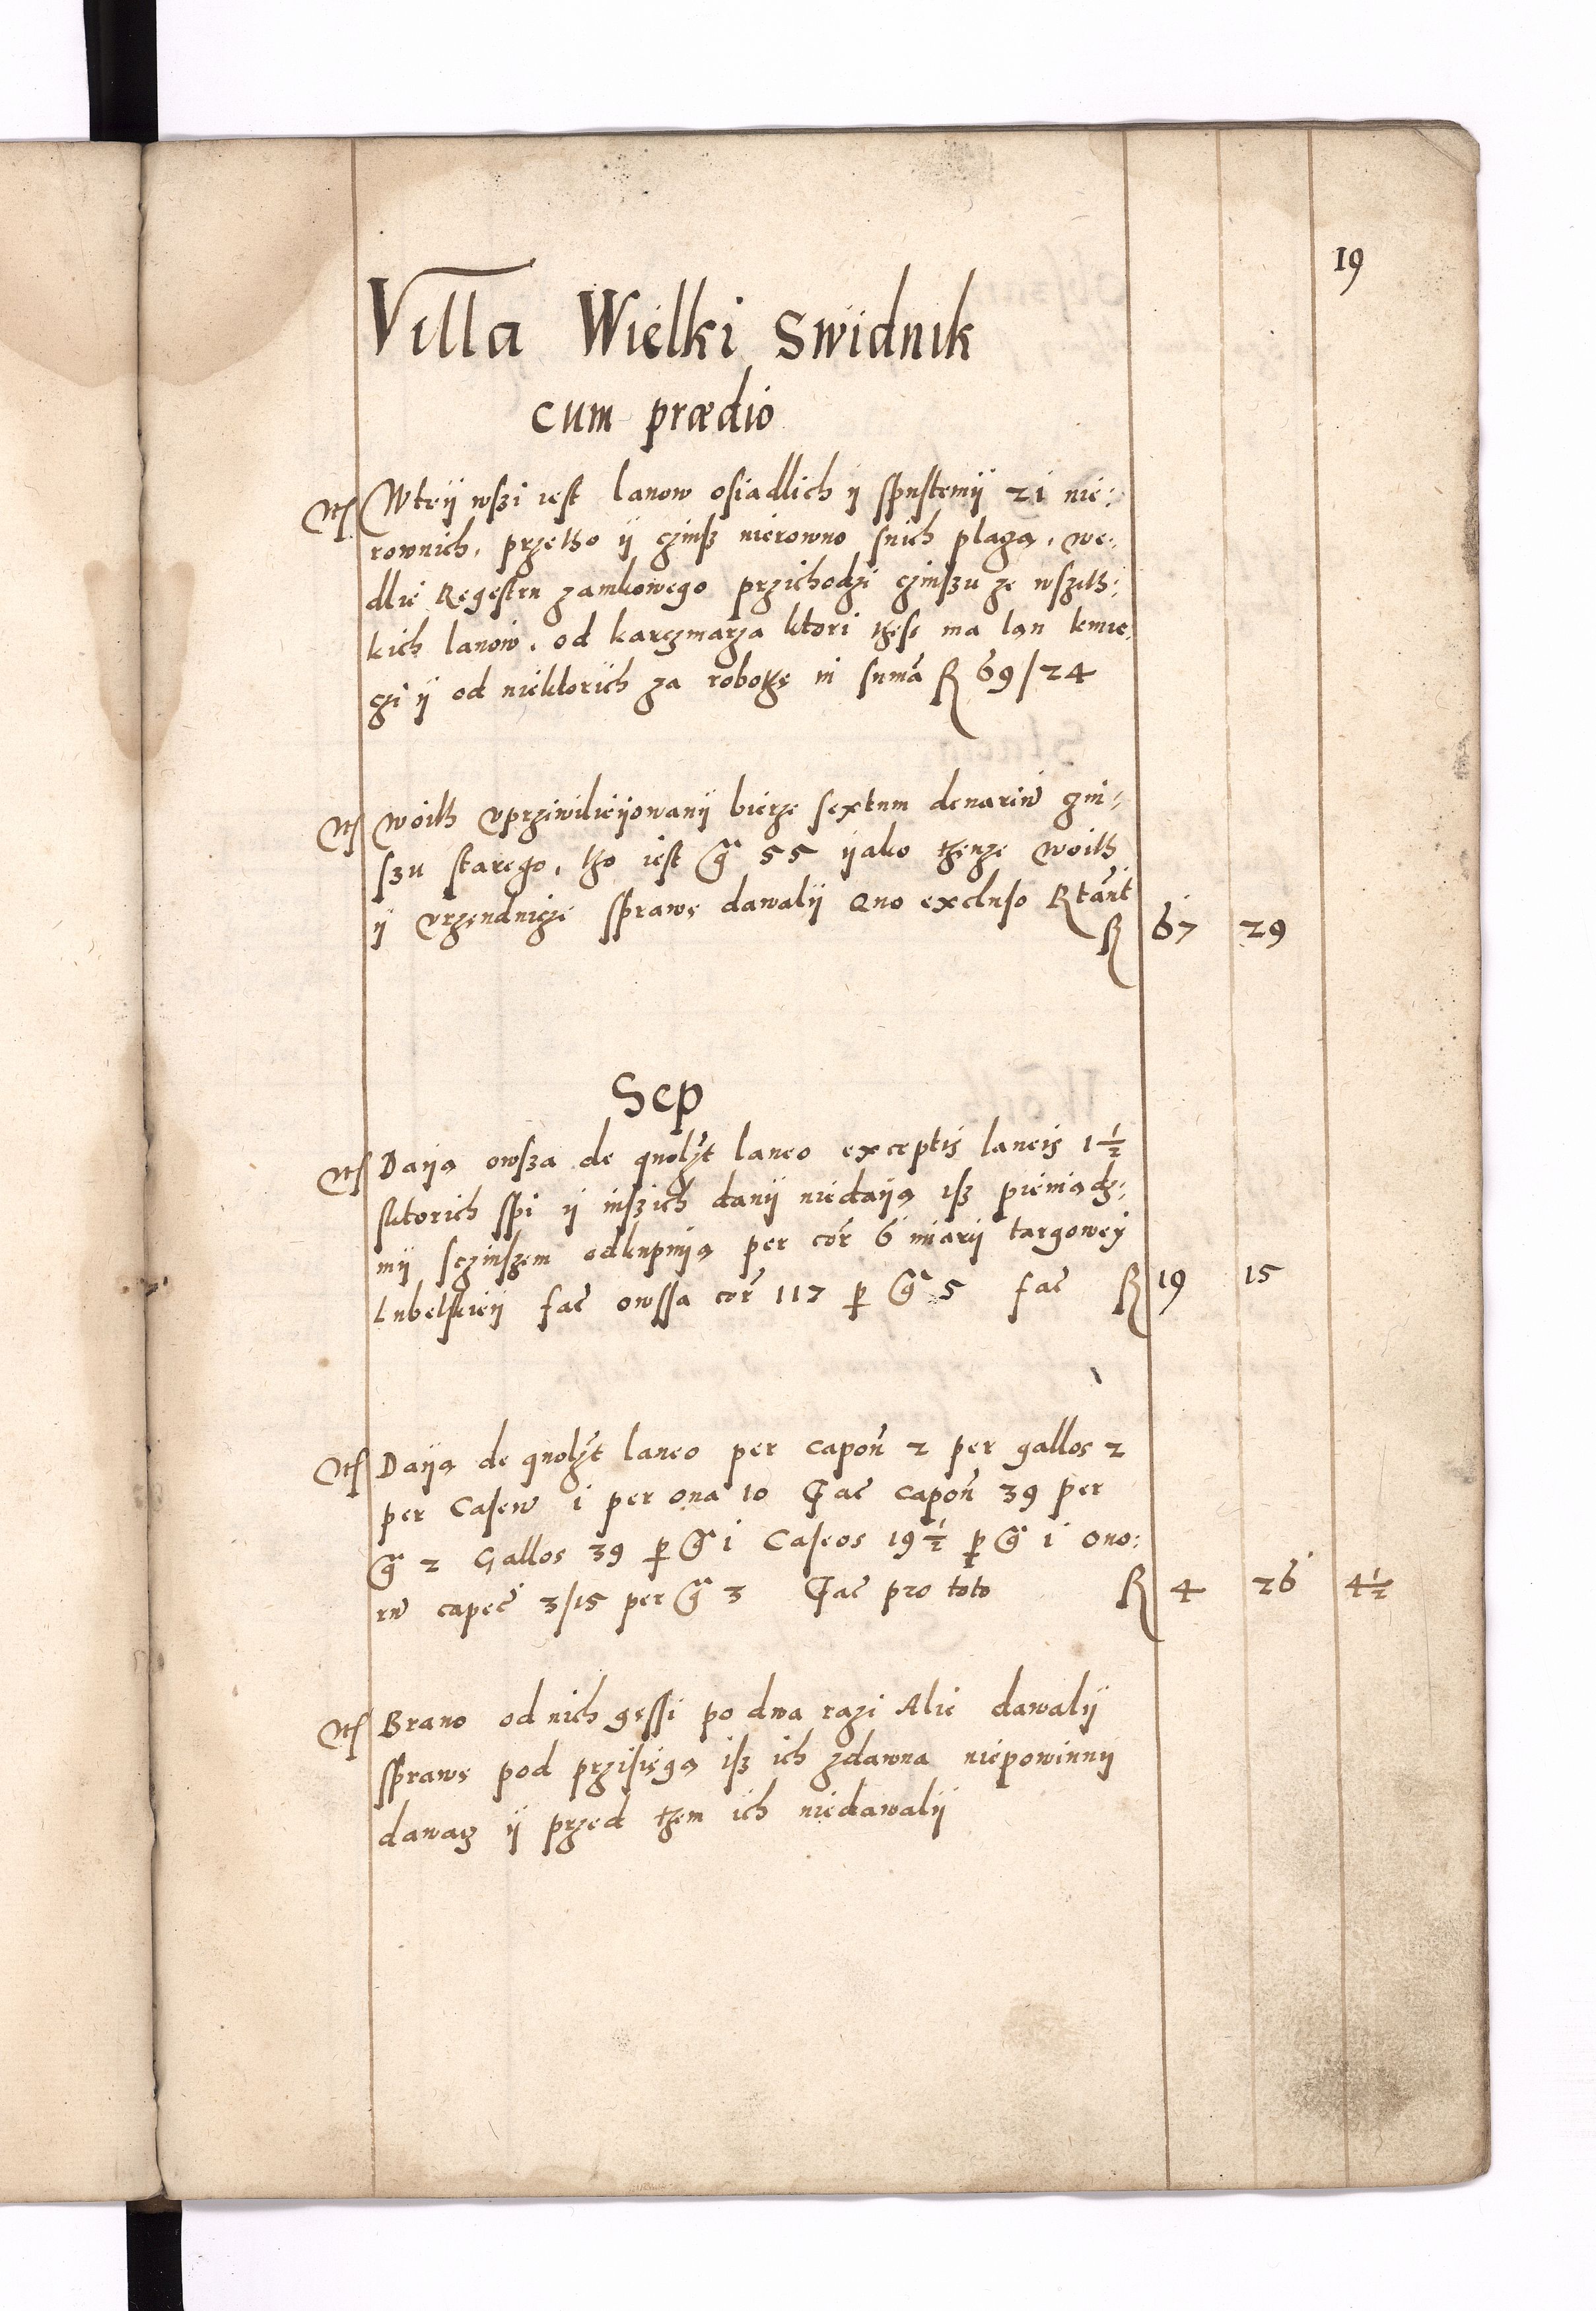 19
Villa Wielki Swidnik
cum prædio
Itẽ Wteÿ wszi iest lanow osiadlich ÿ spustemÿ 21 nie:
rownich, przetho ÿ czinsz nierowno snich plaza, we:
dlie Regestru zamkowego przichodzi czinszu ze wszith:
kich lanow, od karczmarza ktori thesz ma lan kmie:
czi ÿ od niektorich za robothę in sumã R 69/24
Itẽ Woith vprziwilieÿowanÿ bierze sextum denariũ czin:
szu starego, tho iest gͬ 55 ÿako thenze woith
ÿ vrzendniczÿ sprawę dawalÿ Quo excluso Rtãnt
R 67 29
Sep
Itẽ Daÿą owsza de quolʒt laneo exceptis laneis 1 1/2
sktorich spi ÿ inszich danÿ niedaÿą isz pieniądz:
mÿ sczinszem odkupuią per cor̃ 6 miarÿ targoweÿ
Lubelskieÿ fac̃ owssa cor̃ 117 ꝑ gͬ 5 fac̃ R 19 15
Itẽ Daÿą de quolʒt laneo per capoñ 2 per gallos 2
per Caseũ 1 per oua 10 Fac̃ capoñ 39 per
gͬ 2 Gallos 39 ꝑ gͬ 1 Caseos 19 1/2 ꝑ gͬ 1 Ouo:
rũ capec̃ 3/15 per gͬ 3 Fac̃ pro toto R 4 26 4 1/2
Itẽ Brano od nich gęssi po dwa razi Alie dawalÿ
sprawę pod przisięgą isz ich zdawna niepowinnÿ
dawacz ÿ przed them ich niedawalÿ